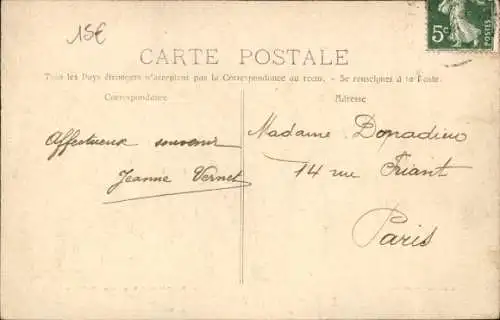 15€
5c
POSTES
CARTE POSTALE
Tous les Pays étrangers n'acceptent pas la Correspondance au recto. - Se renseigner à la Poste.
Correspondance
Affectueux souvenir
Jeanne Vernet
Adresse
Madame Donadieu
14 rue Friant
Paris